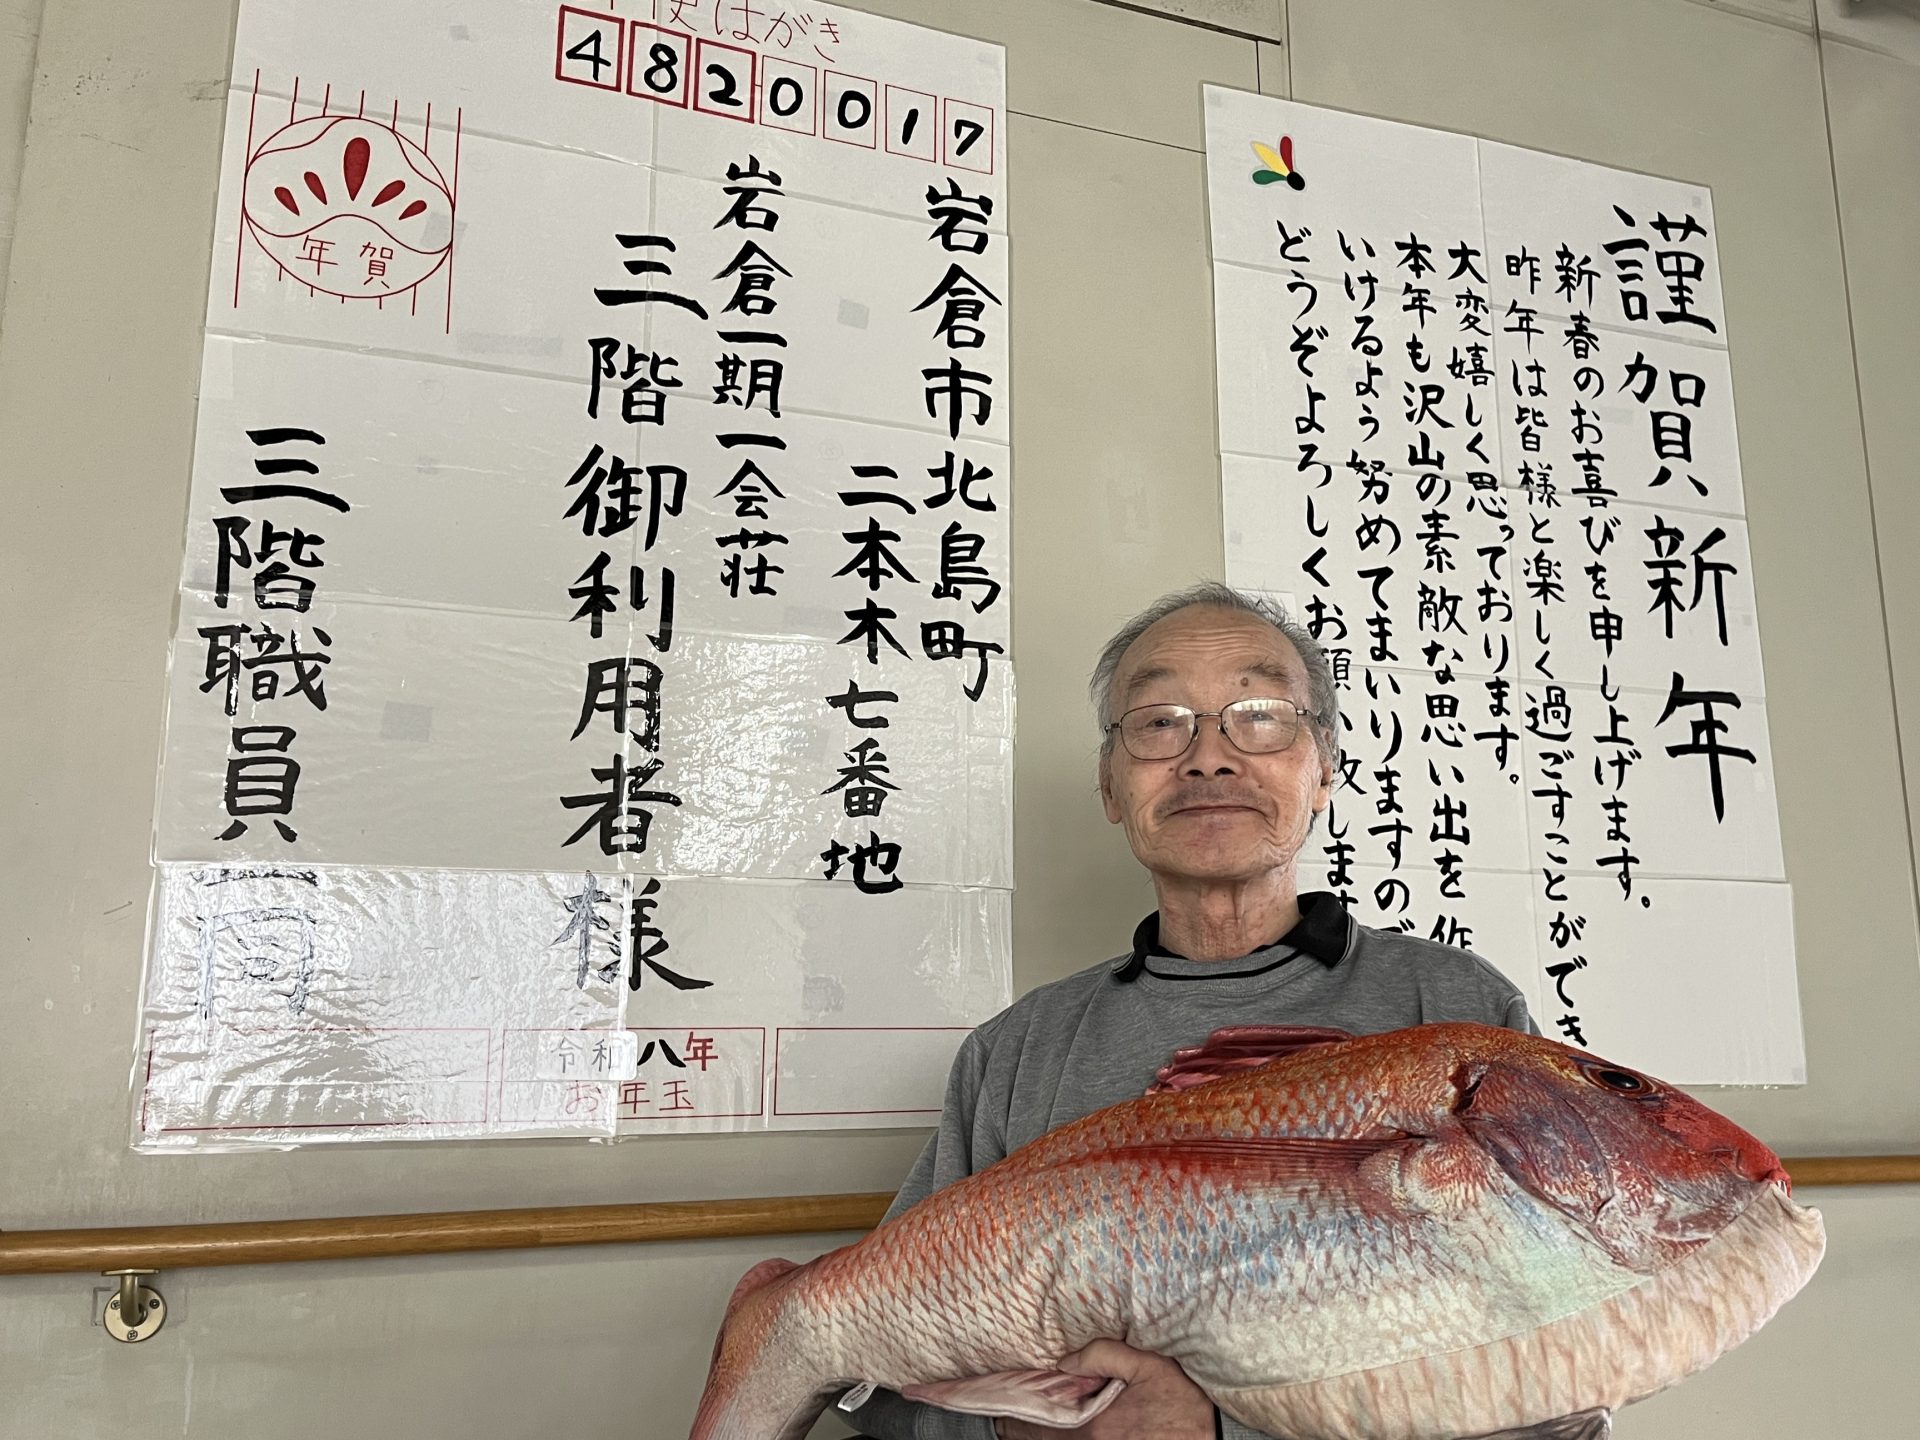 便はがき
4820017
岩倉市北島町
二本木七番地
岩倉一期一会荘
三階御利用者様
三階職員一同
年賀
令和八年
お年玉
謹賀新年
新春のお喜びを申し上げます。
昨年は皆様と楽しく過ごすことができ
大変嬉しく思っております。
本年も沢山の素敵な思い出を作
いけるよう努めてまいりますので
どうぞよろしくお願い致します